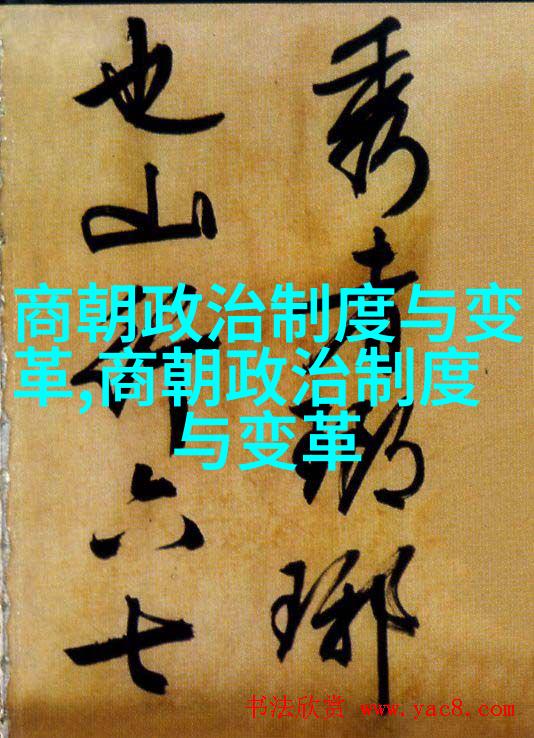 秀者瑯琊
也山行六七
商朝政治制度与变
革,商朝政治制度
与变革
书法欣赏 www.yac8.com